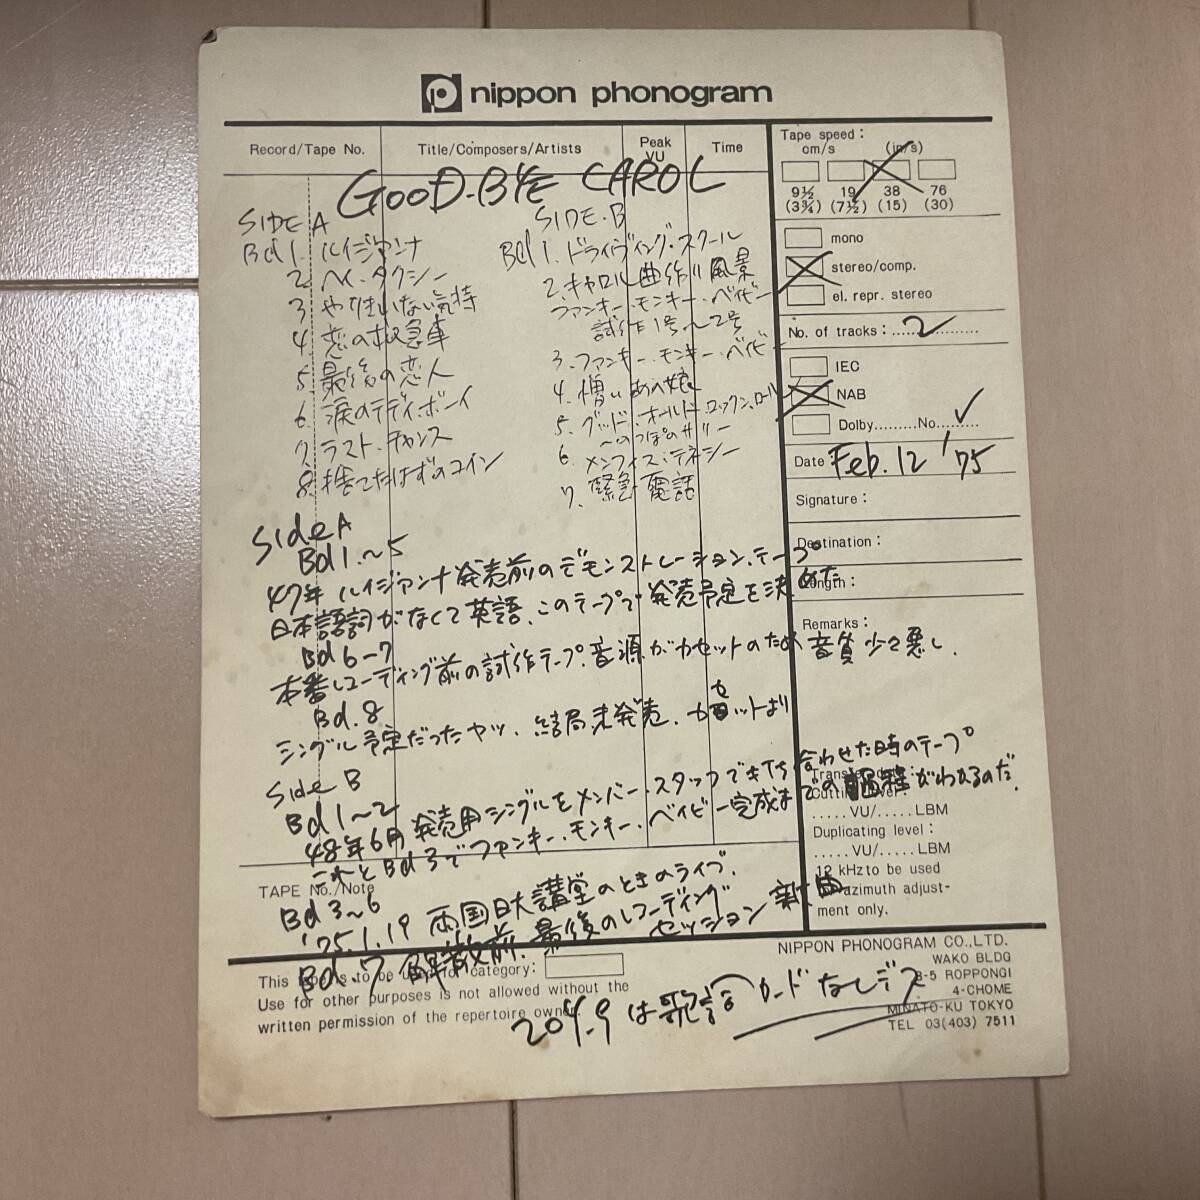 nippon phonogram
Record/Tape No.
Title/Composers/Artists
Peak VU
Time
GOOD-BYE CAROL
SIDE A
Bd 1. ルイジアンナ
2. ヘイ・タクシー
3 やりきれない気持
4. 恋の救急車
5. 最後の恋人
6. 涙のテディ・ボーイ
7. ラスト・チャンス
8. 捨てたはずのコイン
SIDE・B
Bd 1. ドライヴィング・スクール
2. キャロル曲作り風景
ファンキー・モンキー・ベイビー
試作1号〜2号
3. ファンキー・モンキー・ベイビー
4. 憎いあの娘
5. グッド・オールド・ロックン・ロール
〜のっぽのサリー
6. メンフィス・テネシー
7. 緊急電話
Side A
Bd 1〜5
47年 ルイジアンナ発売前のデモンストレーション・テープ
日本語詞がなくて英語、このテープで発売予定を決めた
Bd 6-7
本番レコーディング前の試作テープ、音源がカセットのため音質少々悪し.
Bd. 8
シングル予定だったヤツ、結局未発売、カセットより
Side B
Bd 1〜2
48年6月 発売用シングルをメンバー・スタッフで打ち合わせた時のテープ
これとBd 3でファンキー・モンキー・ベイビー完成までの過程がわかるのだ.
Bd 3〜6
'75.1.19 両国日大講堂のときのライブ.
Bd. 7 解散前、最後のレコーディング
セッション 新曲
は歌詞カードなしデス
Tape speed:
cm/s (in/s)
9½ (3¾) 19 (7½) 38 (15) 76 (30)
mono
stereo/comp.
el. repr. stereo
No. of tracks: ..... 2 .........
IEC
NAB
Dolby.........No.........
Date Feb. 12 '75
Signature:
Destination:
Length:
Remarks:
.....VU/.....LBM
Duplicating level:
.....VU/.....LBM
12 kHz to be used
azimuth adjust-
ment only.
TAPE No./Note
This tape is to be used for category:
Use for other purposes is not allowed without the
written permission of the repertoire owner
NIPPON PHONOGRAM CO.,LTD.
WAKO BLDG
8-5 ROPPONGI
4-CHOME
MINATO-KU TOKYO
TEL 03(403) 7511